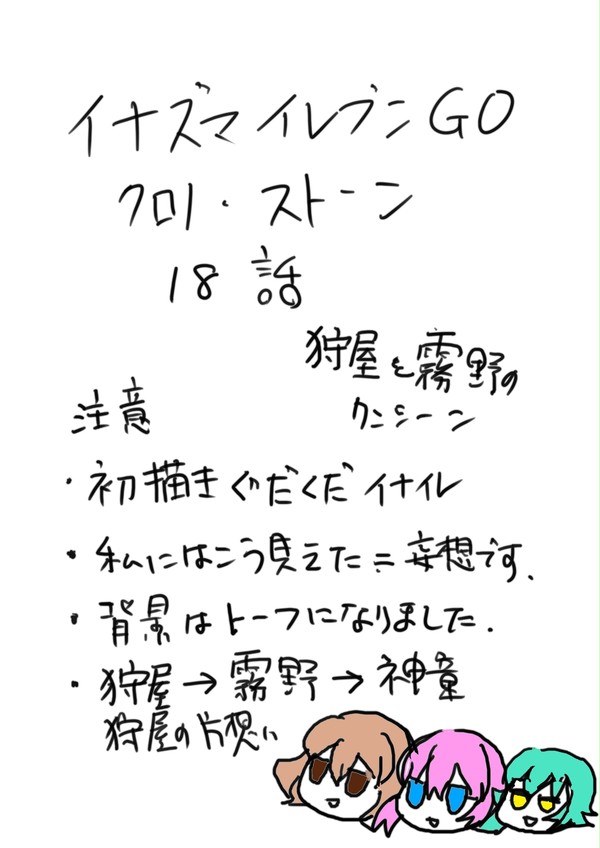 イナズマイレブンGO
クロノ・ストーン
18話
狩屋と霧野の
ワンシーン
注意
・初描きぐだぐだイナイレ
・私にはこう見えた=妄想です.
・背景はトーフになりました.
・狩屋→霧野→神童
狩屋の片想い